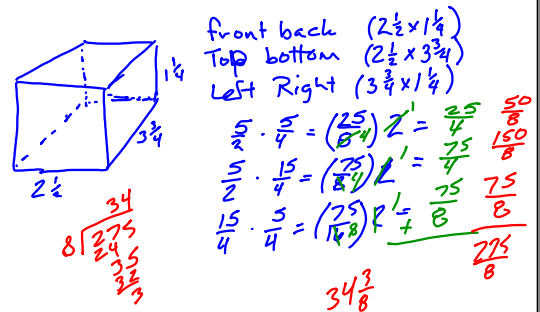 front back (2 1/2 x 1 1/4)
Top bottom (2 1/2 x 3 3/4)
Left Right (3 3/4 x 1 1/4)
1 1/4
3 3/4
2 1/2
5/2 · 5/4 = (25/8 4) 2 1 = 25/4 50/8
5/2 · 15/4 = (75/8 4) 2 1 = 75/4 150/8
15/4 · 5/4 = (75/16 8) 2 1 = + 75/8 75/8
275/8
34
8 275
24
35
32
3
34 3/8